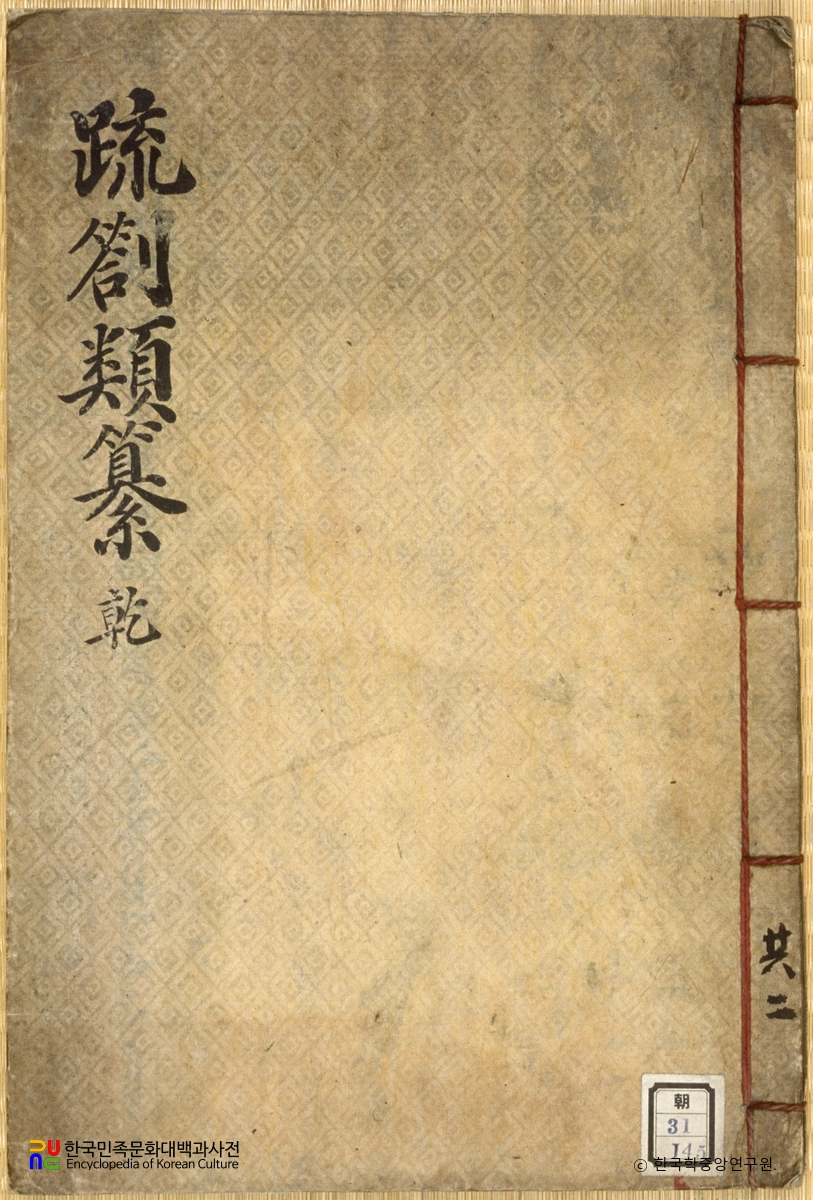 疏劄類纂 乾
共二
朝
31
145
한국민족문화대백과사전
Encyclopedia of Korean Culture
ⓒ 한국학중앙연구원.